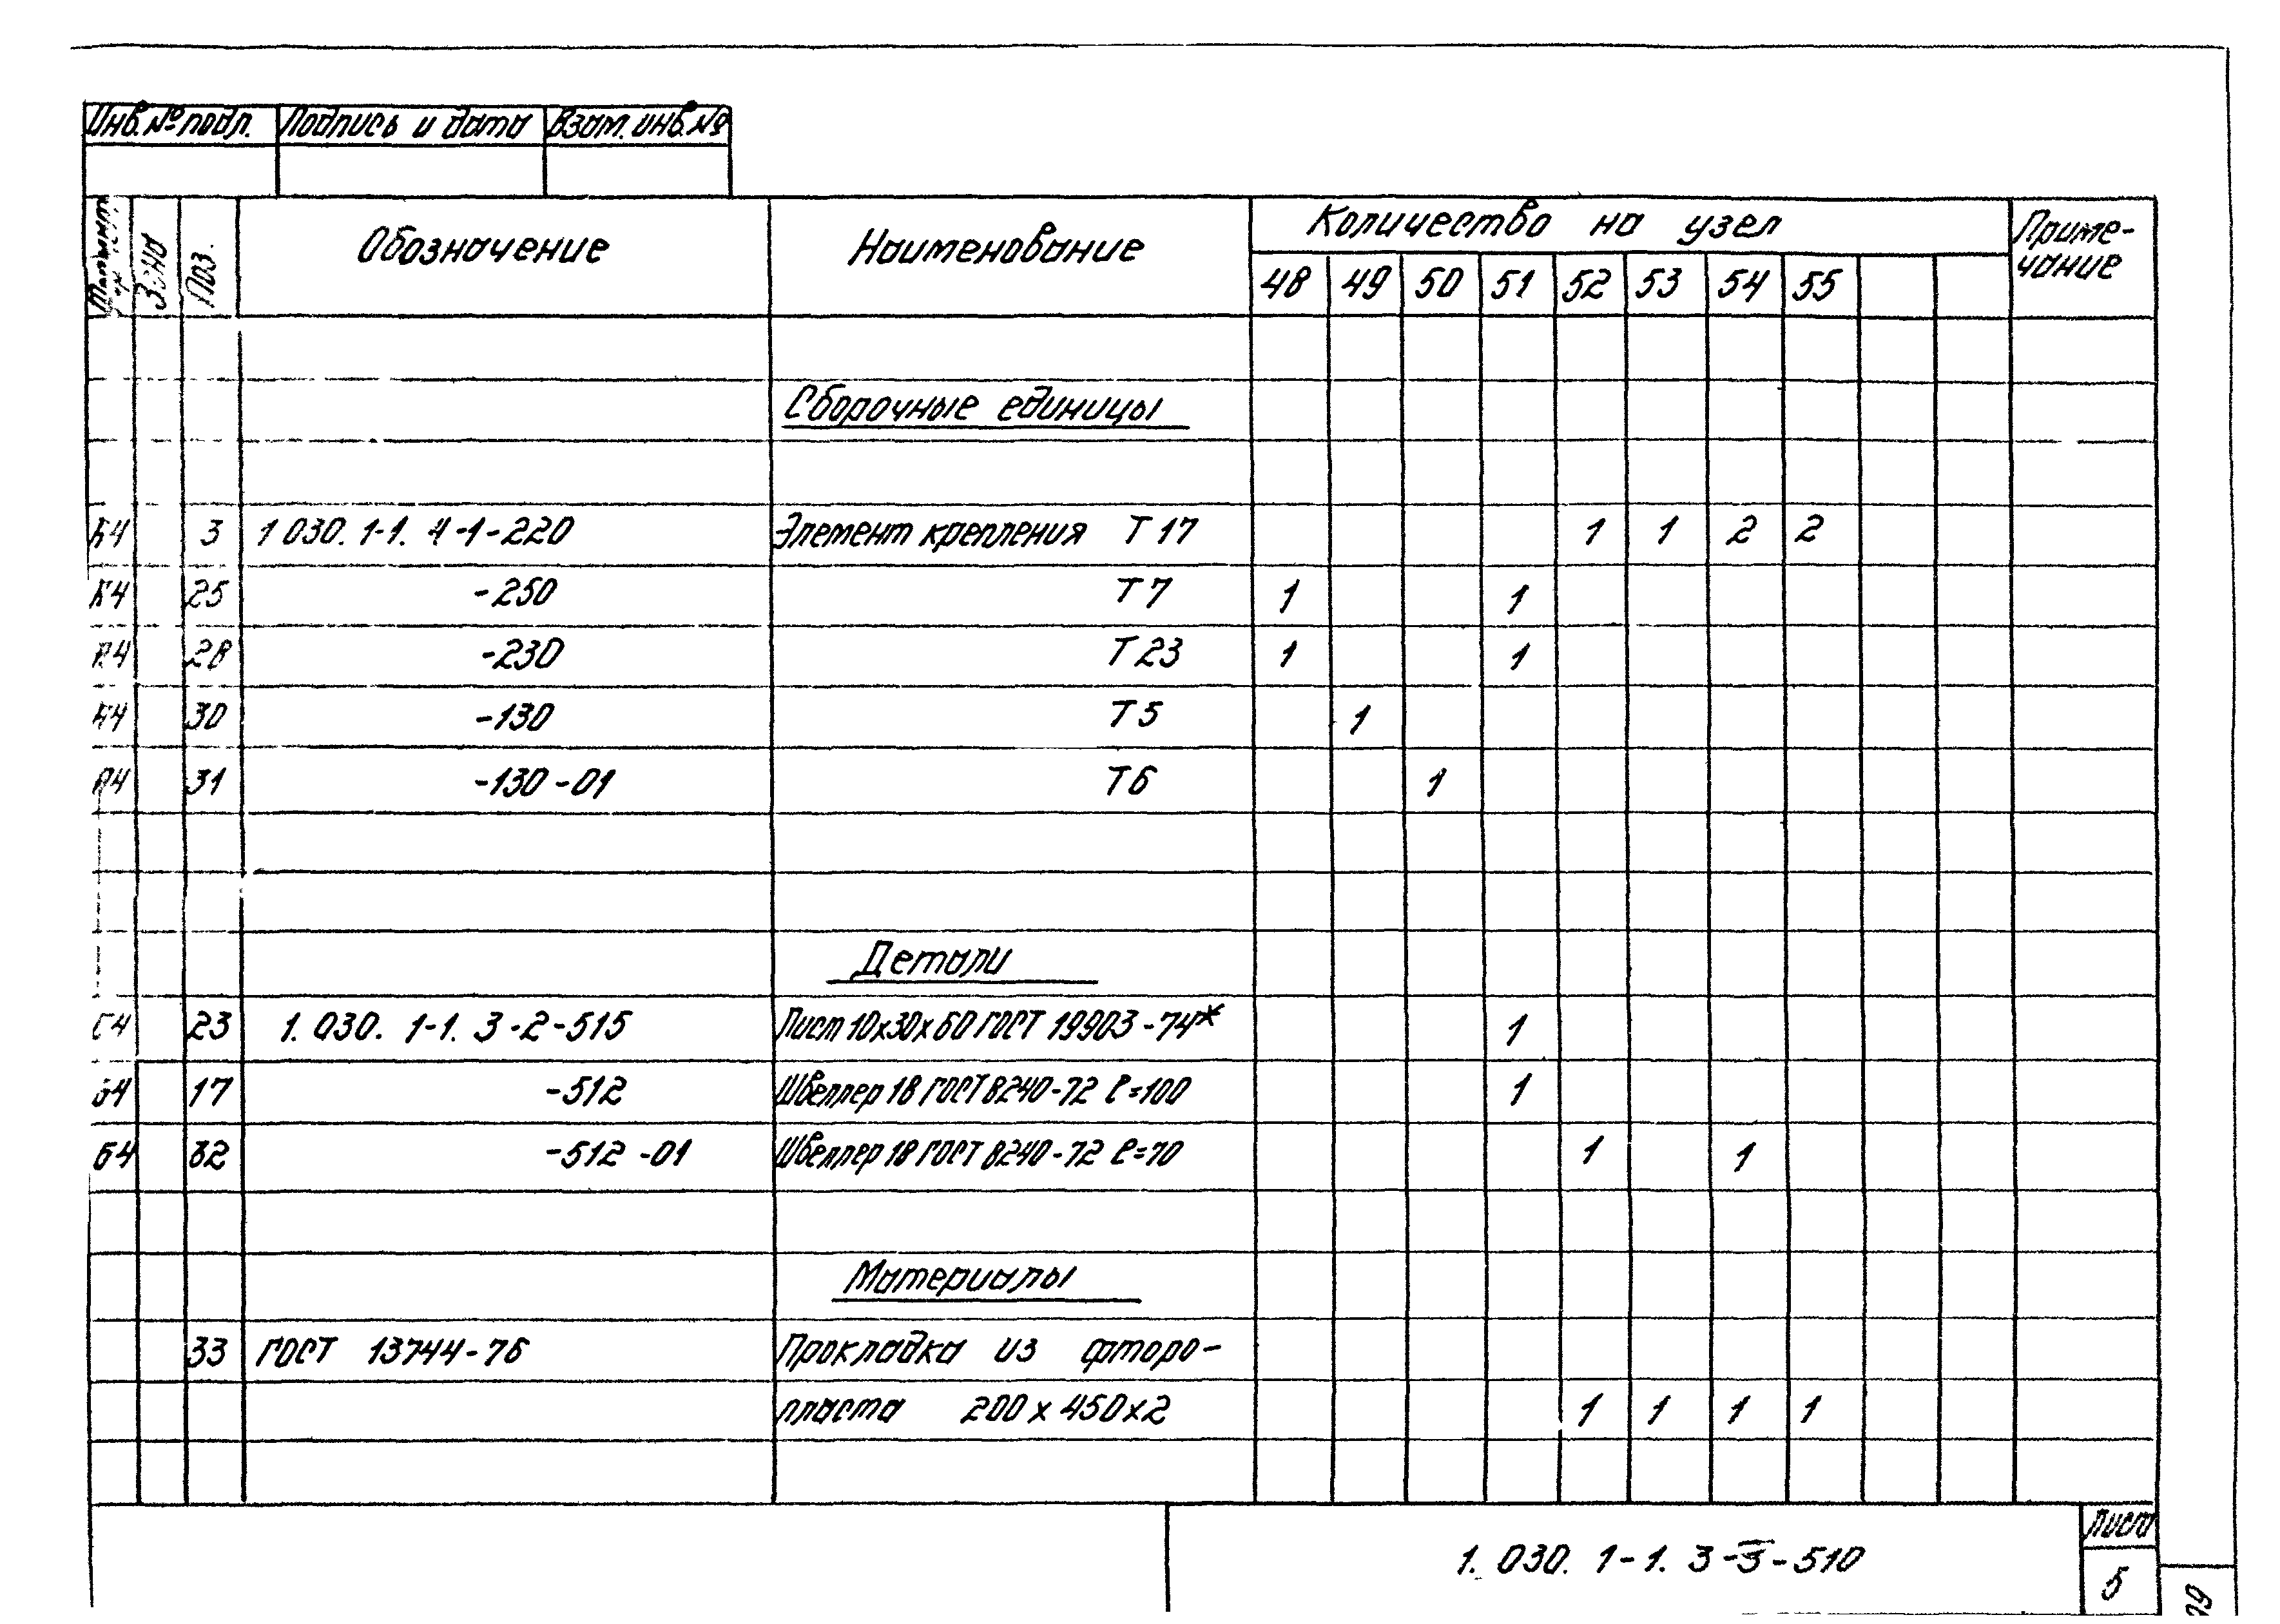 Инв.№ подл. Подпись и дата Взам. инв.№
Зона Поз. Обозначение Наименование Количество на узел Приме-
чание
48 49 50 51 52 53 54 55
Сборочные единицы
Б4 3 1 030. 1-1. 4-1-220 Элемент крепления Т 17 1 1 2 2
Б4 25 -250 Т 7 1 1
А4 28 -230 Т 23 1 1
А4 30 -130 Т 5 1
А4 31 -130-01 Т 6 1
Детали
Б4 23 1. 030. 1-1. 3-2-515 Лист 10х30х60 ГОСТ 19903-74* 1
Б4 17 -512 Швеллер 18 ГОСТ 8240-72 ℓ=100 1
Б4 32 -512-01 Швеллер 18 ГОСТ 8240-72 ℓ=70 1 1
Материалы
33 ГОСТ 13744-76 Прокладка из фторо-
пласта 200 х 450х2 1 1 1 1
1. 030. 1-1. 3-3-510
Лист
5